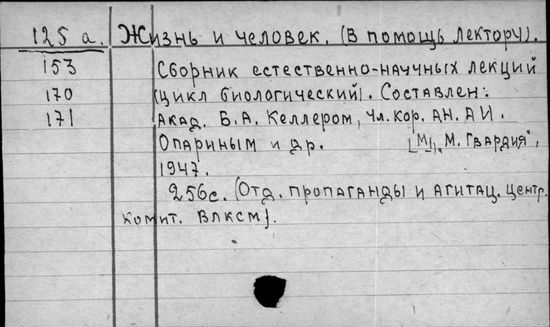 125 а. Жизнь и человек. (В помощь лектору).
153 Сборник естественно-научных лекций
170 (цикл биологический). Составлен:
171 Акад. Б.А. Келлером, чл. кор. АН. А.И.
Опариным и др. [М], „М. Гвардия",
1947.
256с. (Отд. пропаганды и агитац. Центр.
комит. ВЛКСМ).